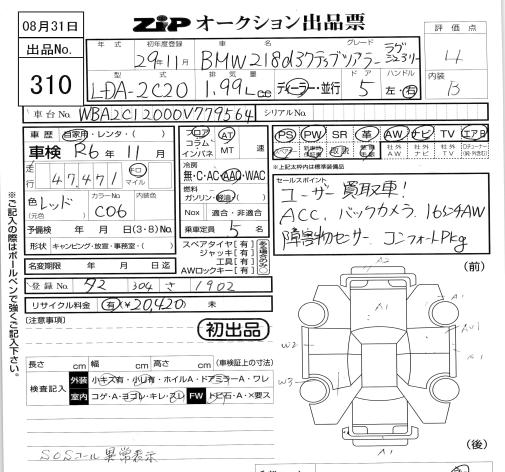 08月31日
ZIP オークション出品票
出品No. 310
評価点 4
内装 B
年式 初年度登録 車名 グレード
29年11月 BMW218d3クテップツアラー ラグジュアリー
型式 排気量 ドア ハンドル
LDA-2C20 1.99L cc ディーラー・並行 5 左・右
車台No. WBA2C12000V779564 シリアルNo.
車歴 自家用・レンタ・( )
車検 R6年11月
走行 47,471 km マイル
色 レッド (元色) カラーNo. C06 内装色
予備検 年 月 日 (3・8)No.
形状 キャンピング・放宣・事務室・( )
名変期限 年 月 日迄
登録No. 304 さ 1902
リサイクル料金 有 (¥20,420) 未
フロア コラム インパネ AT MT 速
冷房
無・C・AC・AAC・WAC
燃料
ガソリン・軽油・( )
Nox 適合・非適合
乗車定員 5 名
スペアタイヤ【有】
ジャッキ【有】
工具【有】
AWロックキー【有】
PS PW SR 革 AW ナビ TV エアB
*上記太枠内は標準装備品
セールスポイント
ユーザー買取車!
ACC. バックカメラ. 16インチAW
障害物センサー コンフォートPkg
[注意事項]
初出品
長さ cm 幅 cm 高さ cm (車検証上の寸法)
検査記入 外装 小キズ有・小凹有・ホイルA・ドアミラーA・ワレ
室内 コゲ・A・ヨゴレ・キレ・スレ FW トビ石・A・×要ス
SOSコール異常表示
※ご記入の際はボールペンで強くご記入下さい。
(前)
A2
A1
A1
AU1
W2
A1
W3
A1
(後)